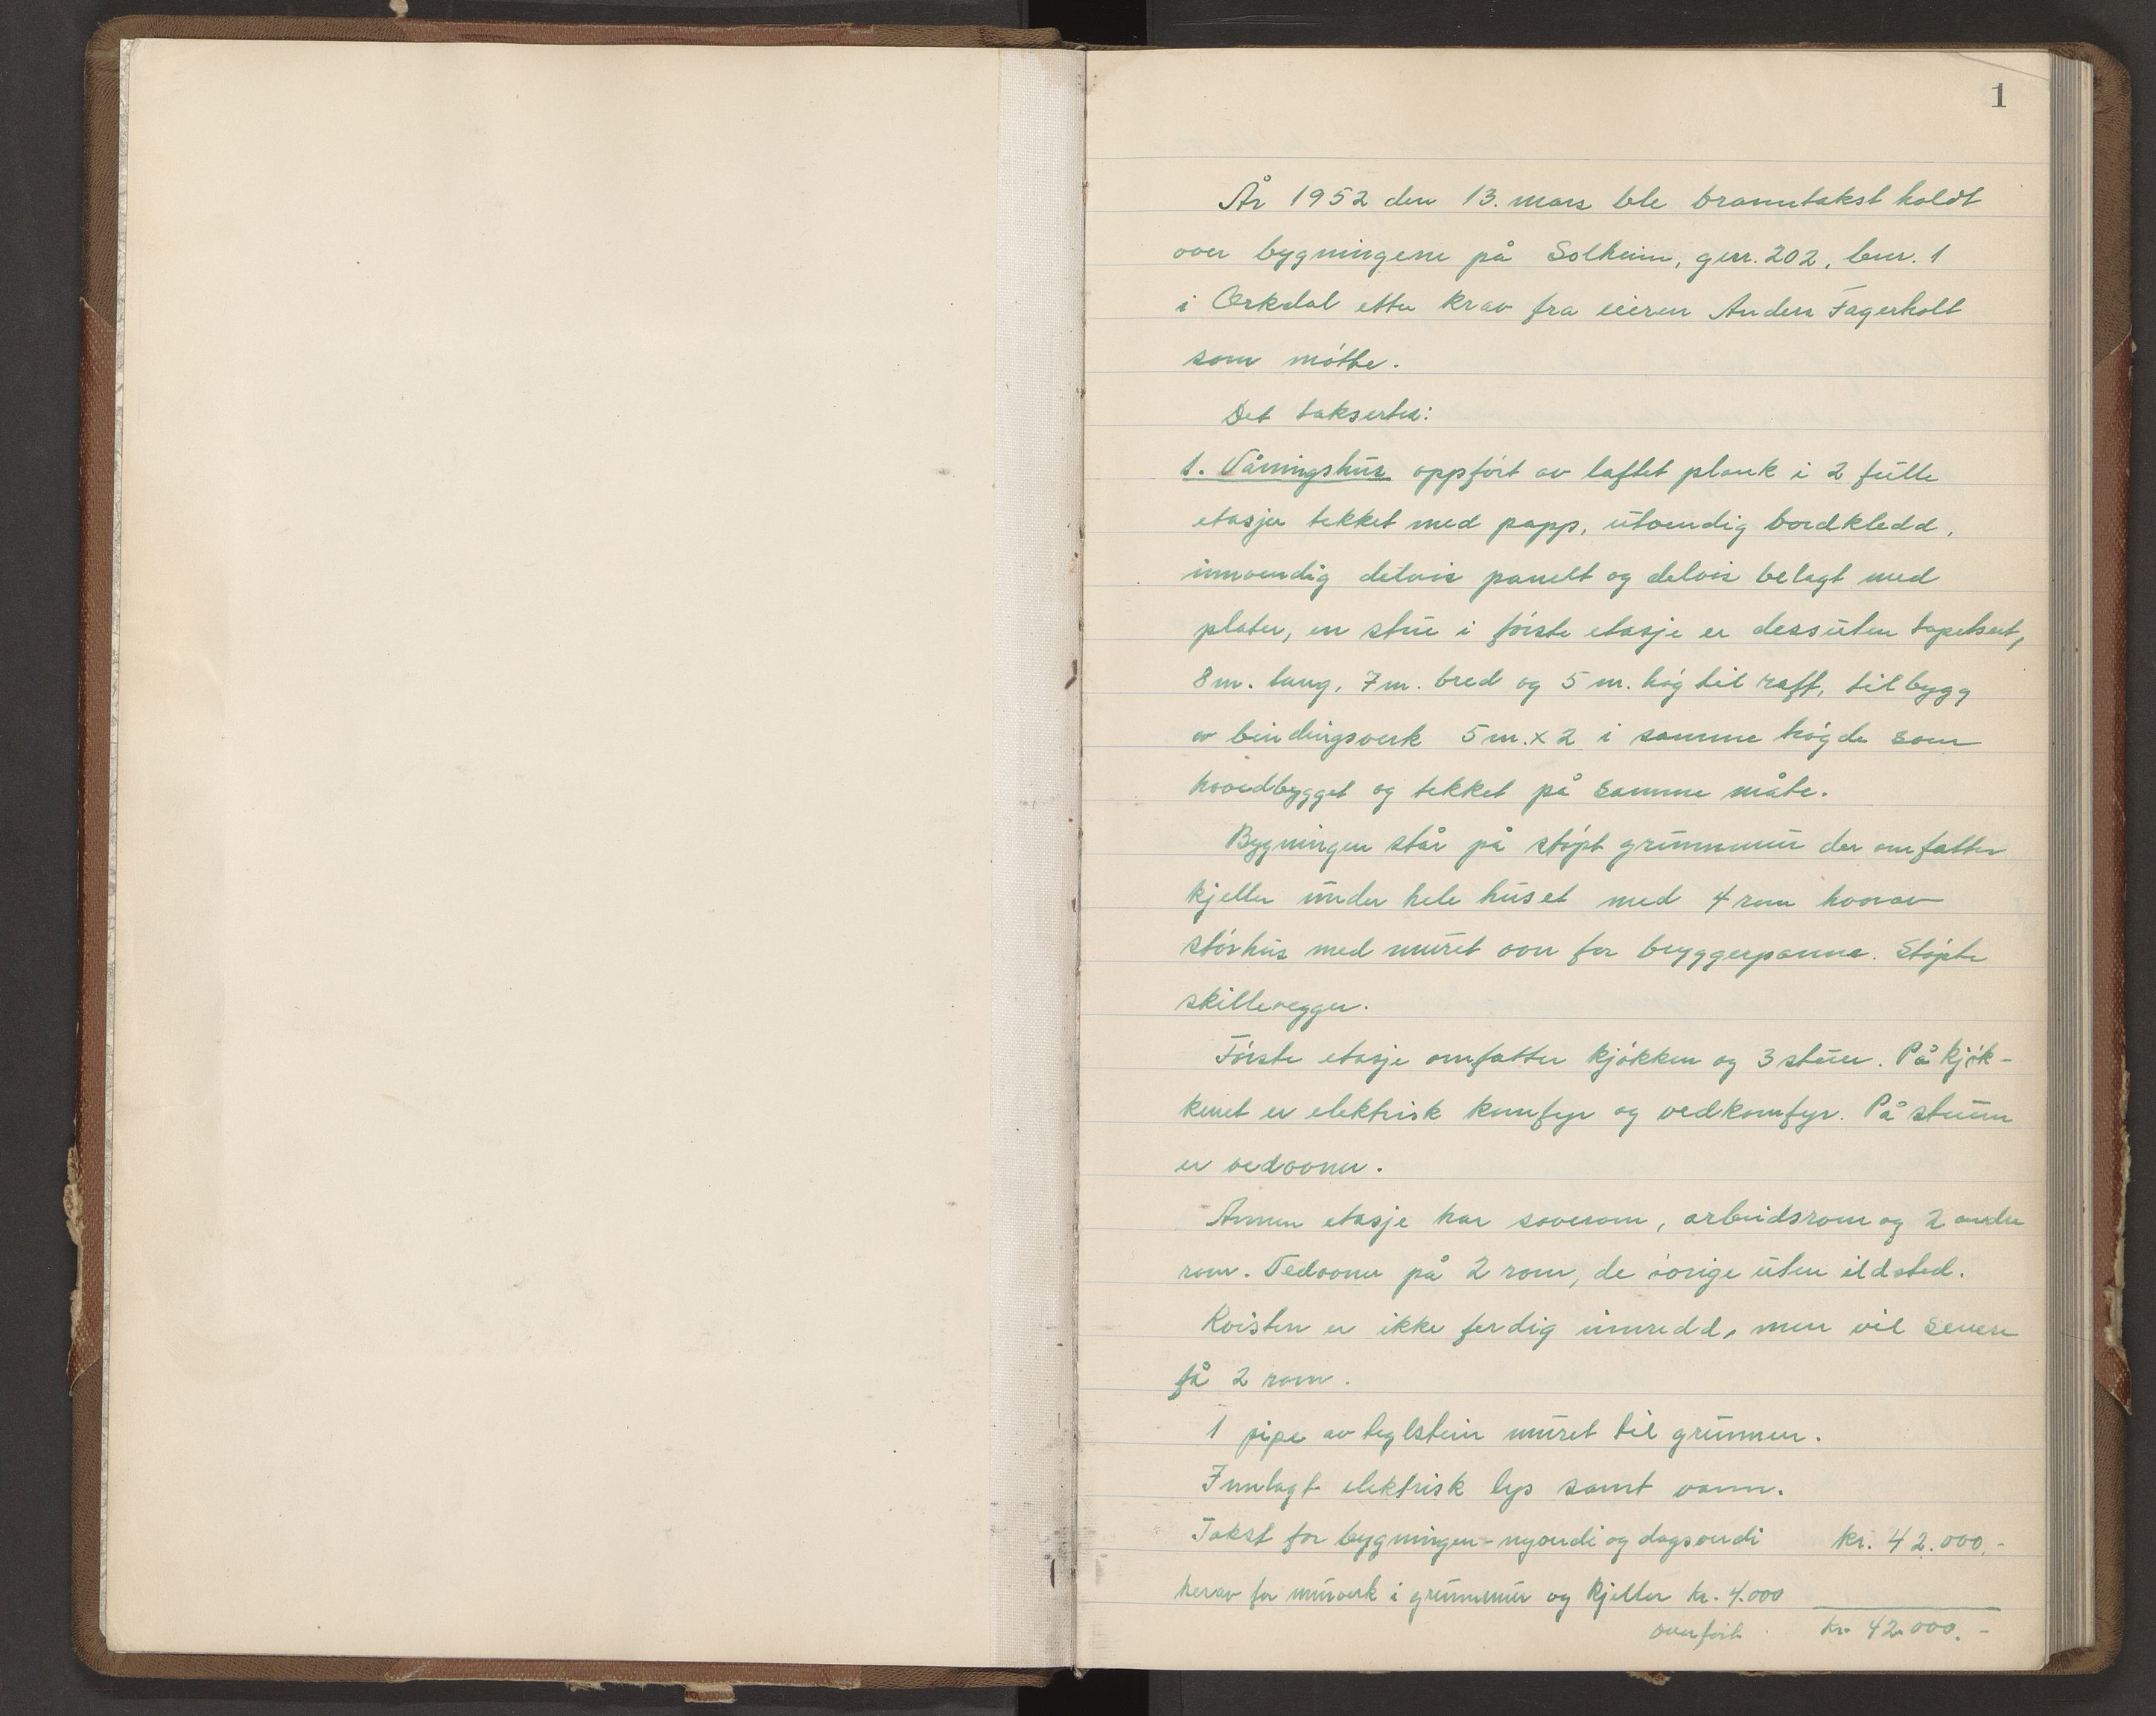 1
År 1952 den 13. mars ble branntakst holdt
over bygningene på Solheim, gnr. 202, bnr. 1
i Orkdal etter krav fra eieren Anders Fagerholt
som møtte.
Det taksertes:
1. Våningshus oppført av laftet plank i 2 fulle
etasjer tekket med papp, utvendig bordkledd,
innvendig delvis panelt og delvis belagt med
plater, en stue i første etasje er dessuten tapetsert,
8 m. lang, 7 m. bred og 5 m. høg til raft, tilbygg
av bindingsverk 5 m. x 2 i samme høgde som
hovedbygget og tekket på samme måte.
Bygningen står på støpt grunnmur der omfatter
kjeller under hele huset med 4 rom hvorav
størhus med muret ovn for bryggerpanne. Støpte
skillevegger.
Første etasje omfatter kjøkken og 3 stuer. På kjøk-
kenet er elektrisk komfyr og vedkomfyr. På stuene
er vedovner.
Annen etasje har soverom, arbeidsrom og 2 andre
rom. Vedovner på 2 rom, de øvrige uten ildsted.
Kvisten er ikke ferdig innredd, men vil senere
få 2 rom.
1 pipe av teglstein muret til grunnen.
Innlagt elektrisk lys samt vann.
Takst for bygningen - nyverdi og dagsverdi kr. 42.000.-
herav for murverk i grunnmur og kjeller kr. 4.000
overført kr. 42.000.-